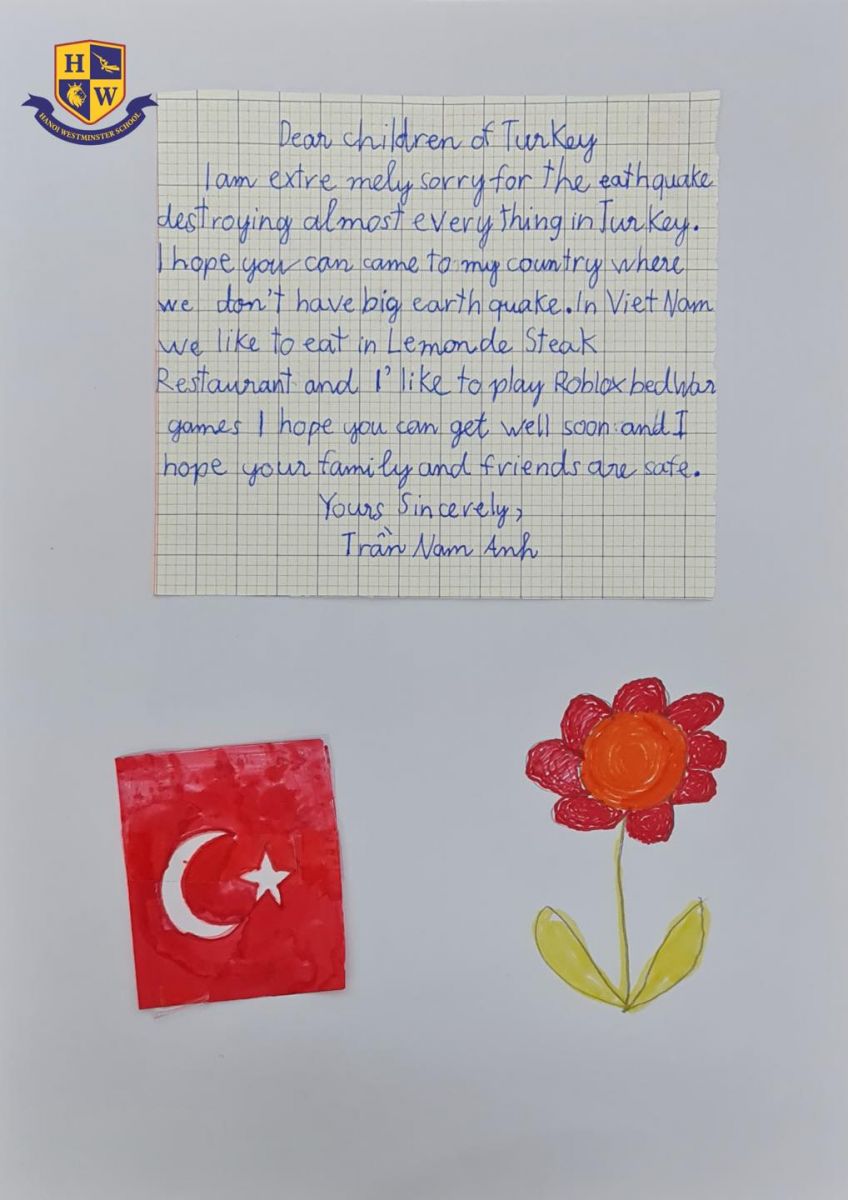 H
W
HANOI WESTMINSTER SCHOOL
Dear children of Turkey
I am extre mely sorry for the eathquake
destroying almost every thing in Turkey.
I hope you can came to my country where
we don't have big earth quake. In Viet Nam
we like to eat in Lemonde Steak
Restaurant and I' like to play Roblox bedwar
games I hope you can get well soon and I
hope your family and friends are safe.
Yours Sincerely,
Trần Nam Anh